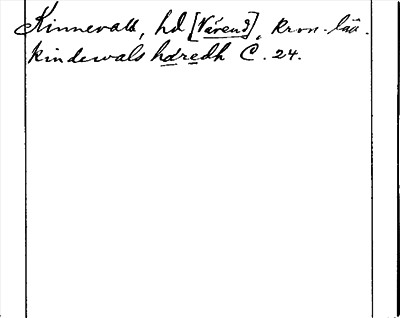 Kinnevald, hd [Värend], Kron. län.
kindewals hdredh C. 24.